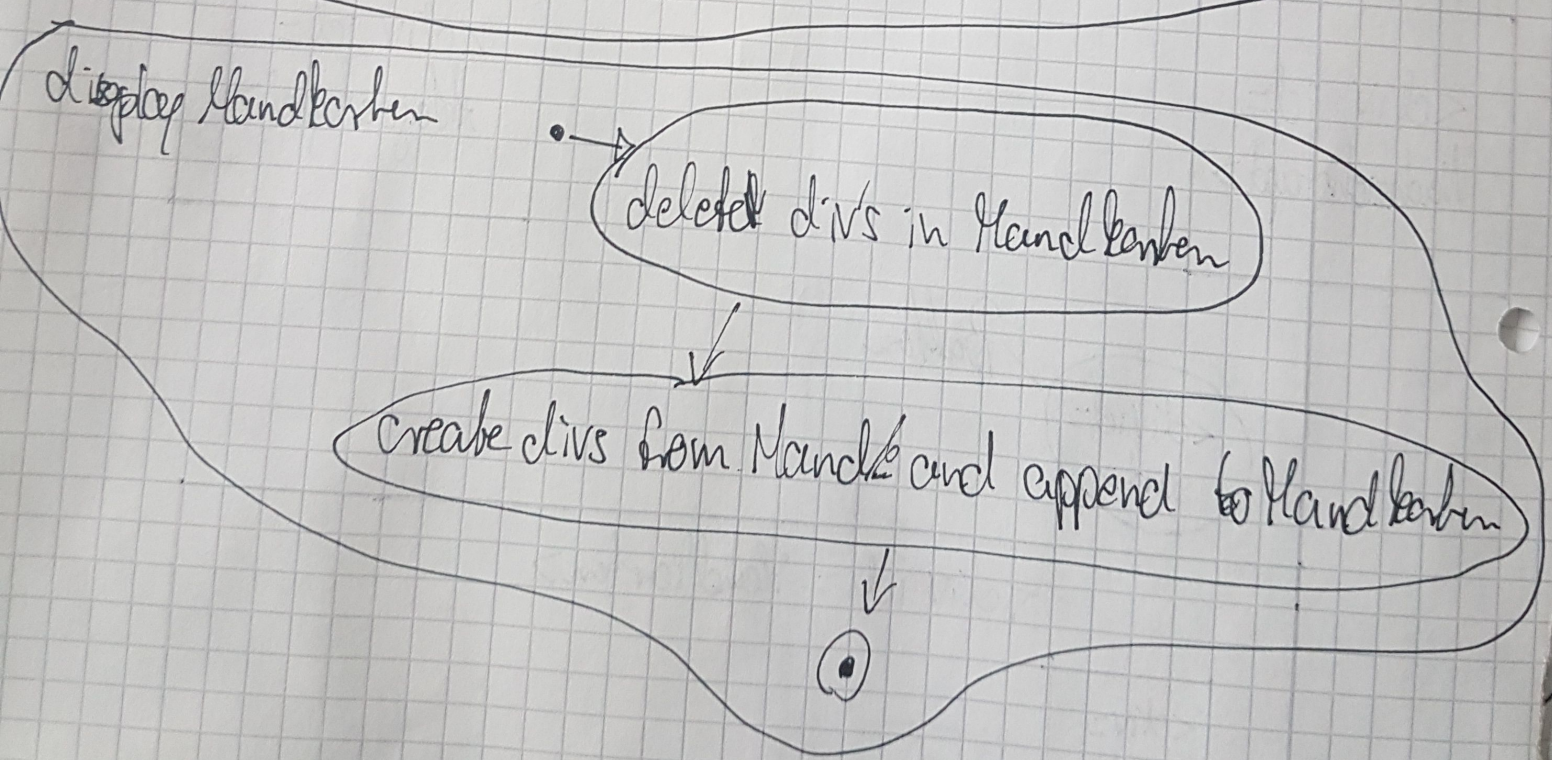 display Handkarten
delete divs in Handkarten
create divs from Handk and append to Handkarten